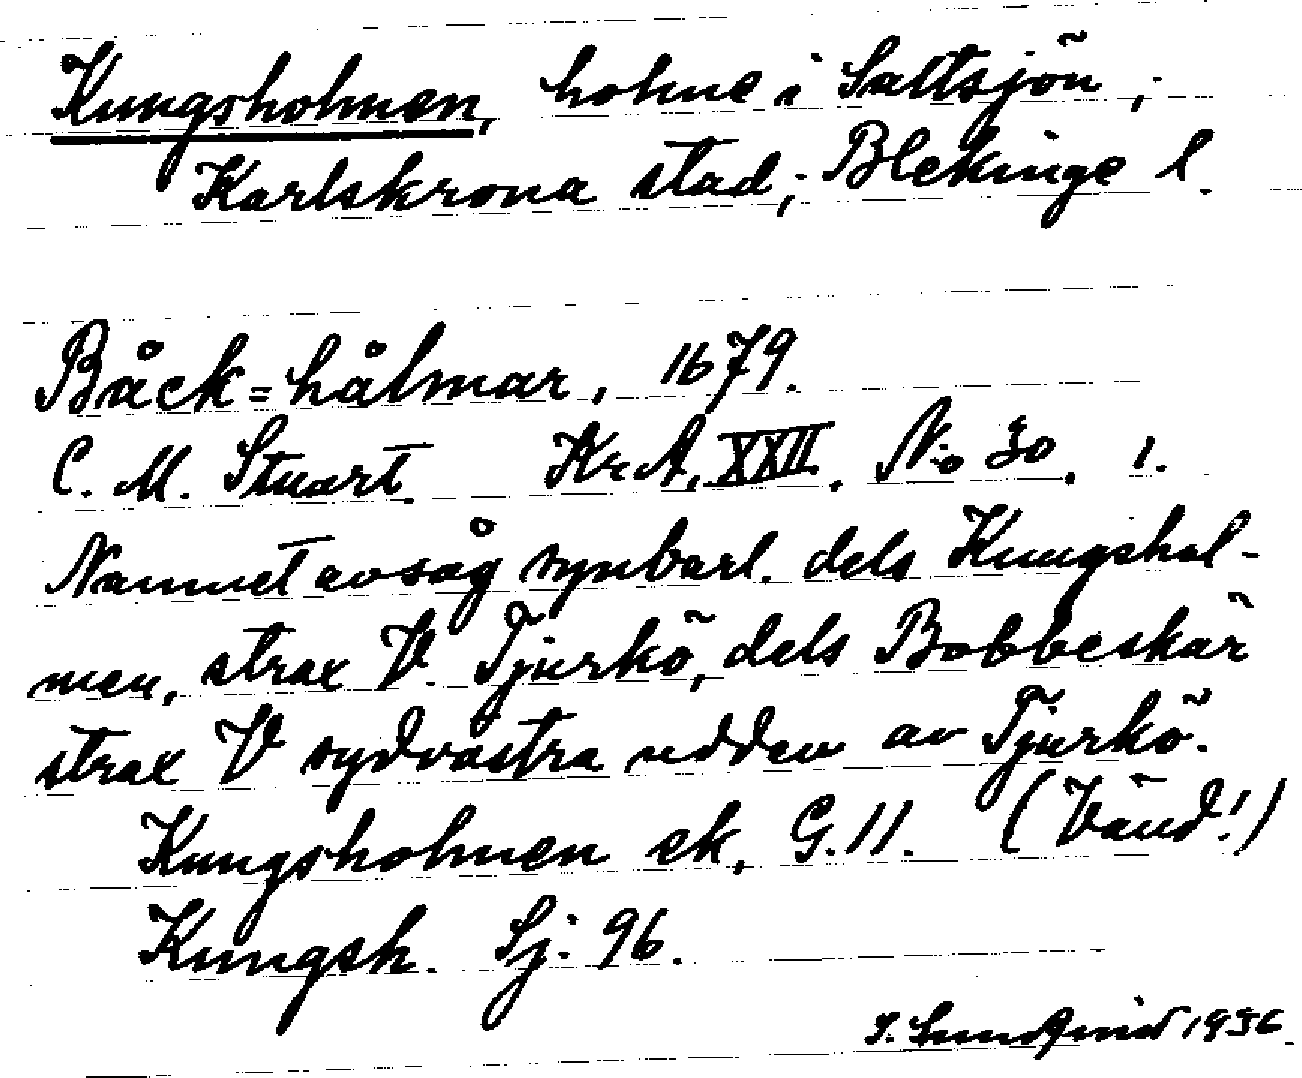 Kungsholmen, holme i Saltsjön,
Karlskrona stad, Blekinge l.
Båck=hålmar, 1679.
C. M. Stuart. KrA, XXII. No 30. 1.
Namnet avsåg synbarl. dels Kungshol-
men, strax V. Tjurkö, dels Bobbeskär
strax V sydvästra udden av Tjurkö.
Kungsholmen ek. G.11. (Vänd!)
Kungsh. Sj. 96.
I. Lundqvist 1936